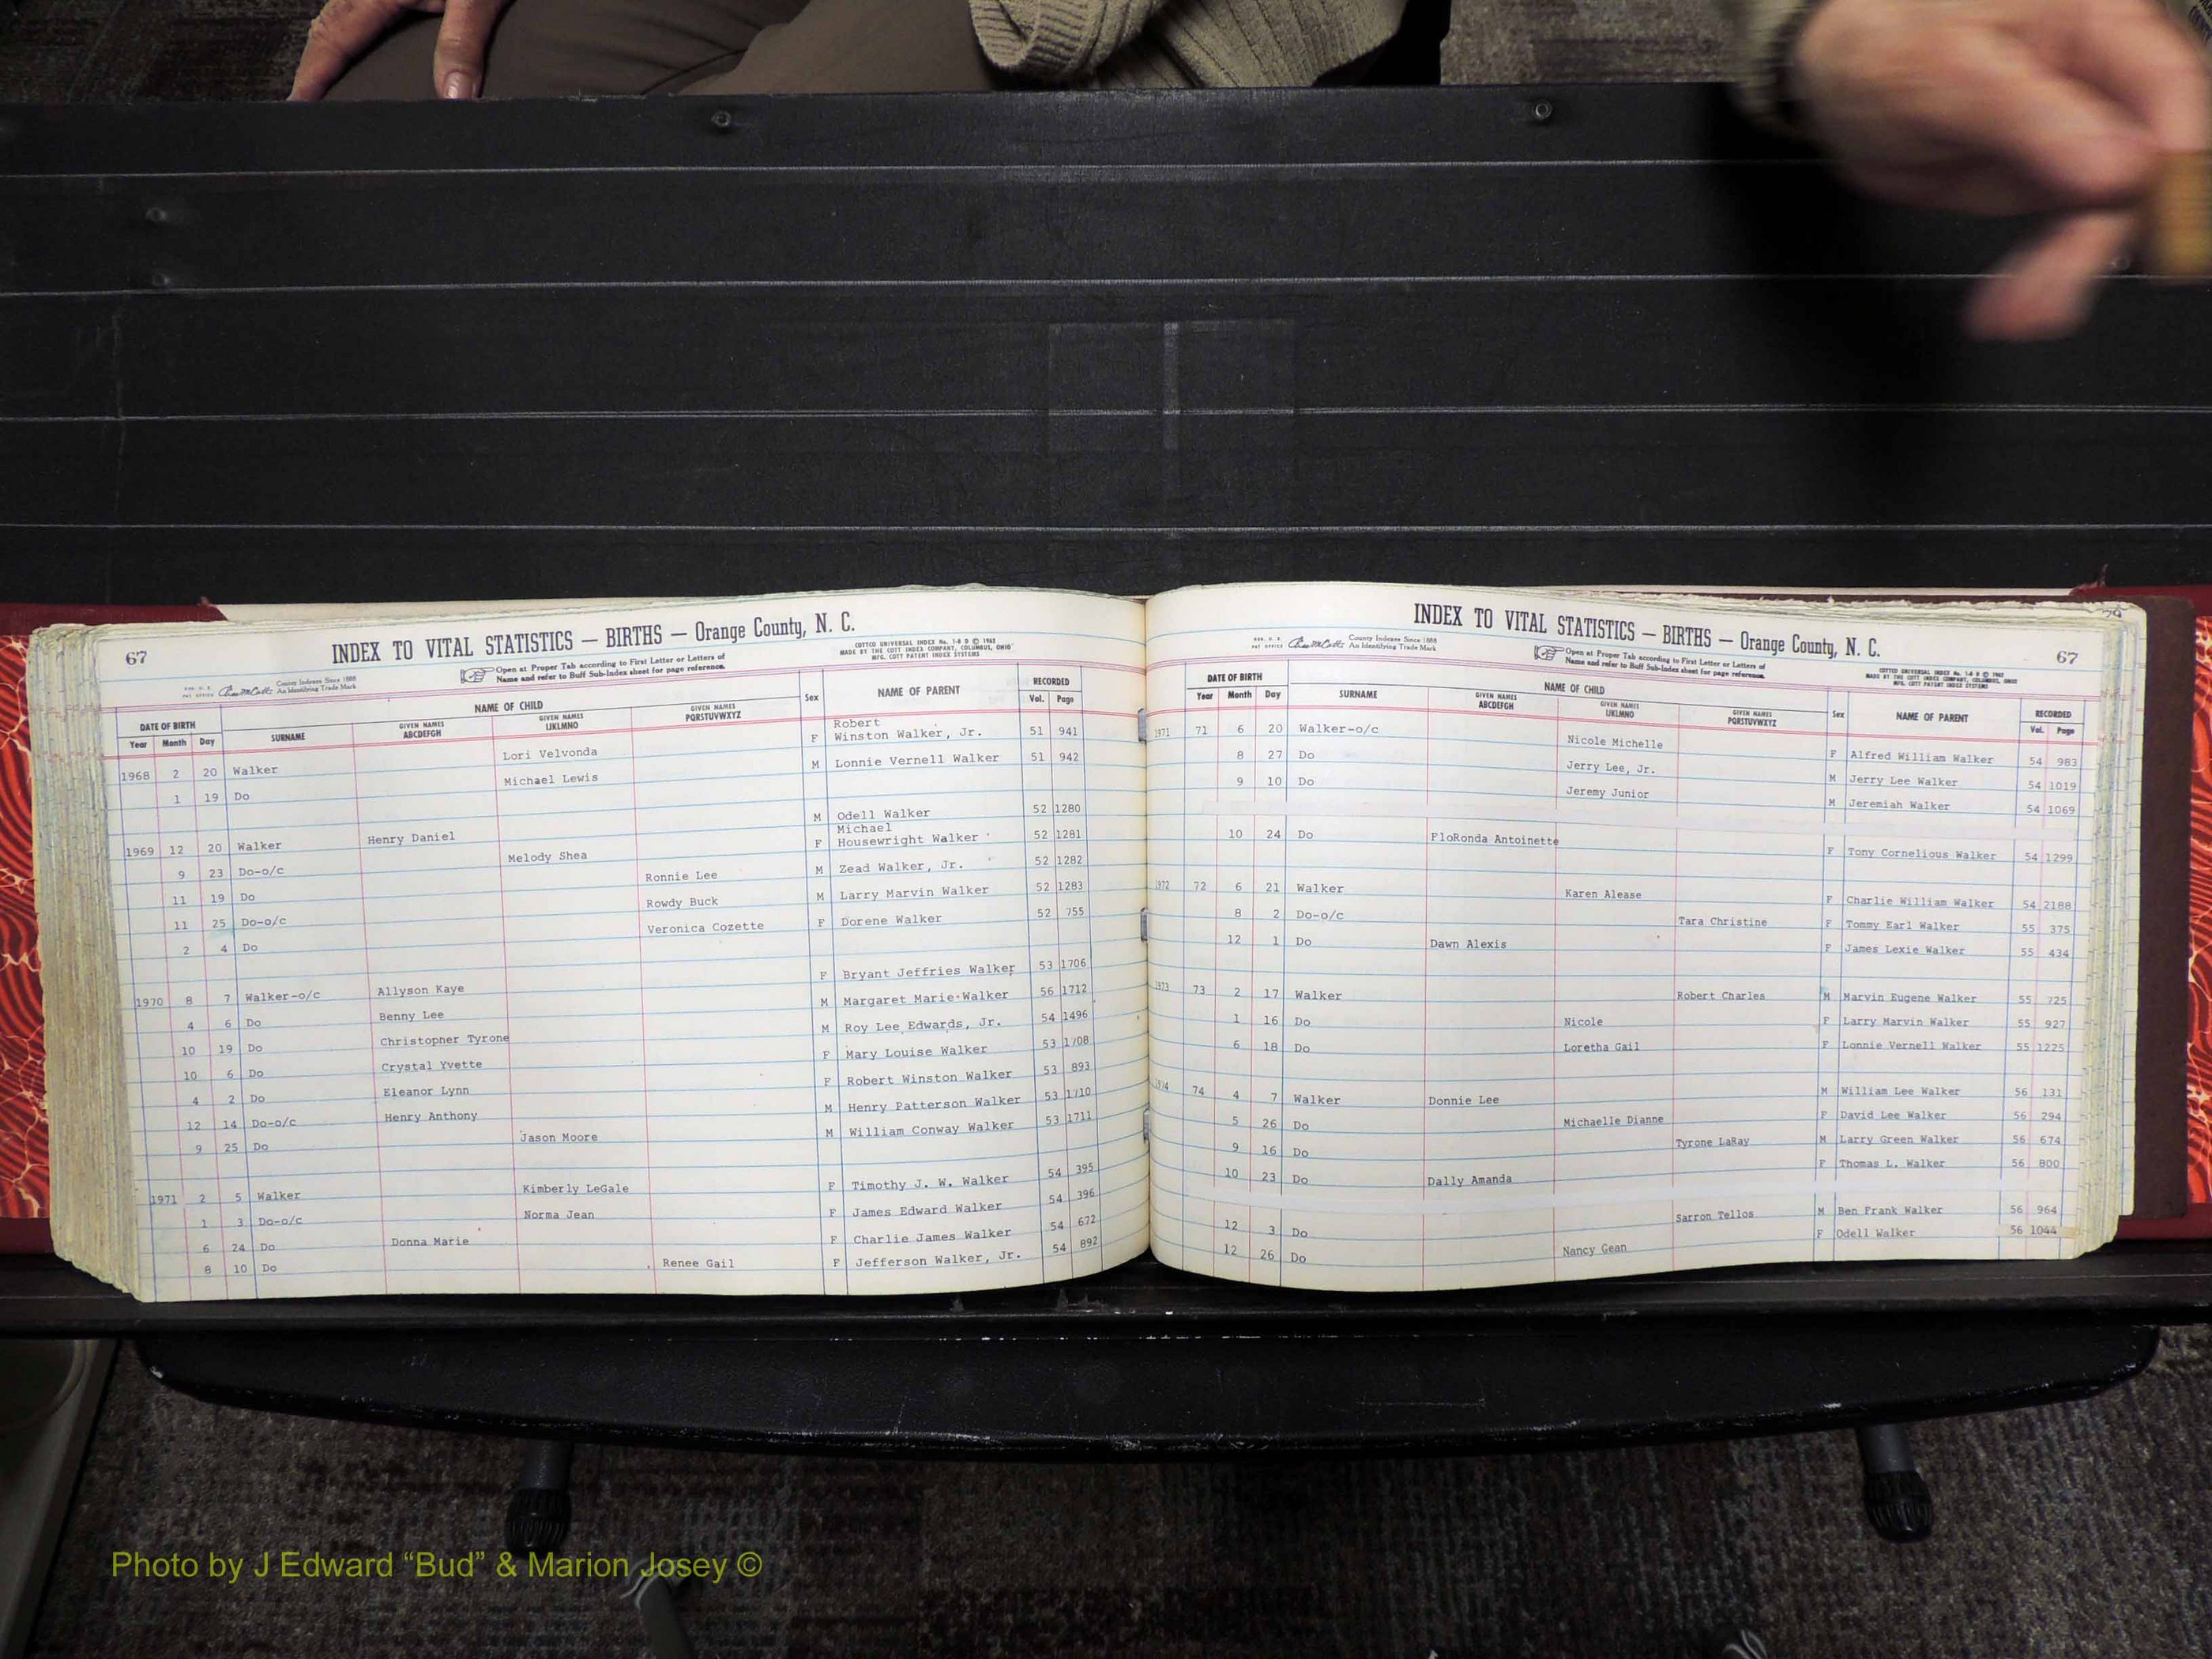 67
INDEX TO VITAL STATISTICS — BIRTHS — Orange County, N. C.
County Indexes Since 1888
An Identifying Trade Mark
Open at Proper Tab according to First Letter or Letters of
Name and refer to Buff Sub-Index sheet for page reference.
COTTCO UNIVERSAL INDEX No. 1-8 D © 1962
MADE BY THE COTT INDEX COMPANY, COLUMBUS, OHIO
MFG. COTT PATENT INDEX SYSTEMS
DATE OF BIRTH NAME OF CHILD Sex NAME OF PARENT RECORDED
Year Month Day SURNAME GIVEN NAMES ABCDEFGH GIVEN NAMES IJKLMNO GIVEN NAMES PQRSTUVWXYZ Vol. Page
1968 2 20 Walker Lori Velvonda F Robert Winston Walker, Jr. 51 941
1 19 Do Michael Lewis M Lonnie Vernell Walker 51 942
1969 12 20 Walker Henry Daniel M Odell Walker 52 1280
9 23 Do-o/c Melody Shea F Michael Housewright Walker 52 1281
11 19 Do Ronnie Lee M Zead Walker, Jr. 52 1282
11 25 Do-o/c Rowdy Buck M Larry Marvin Walker 52 1283
2 4 Do Veronica Cozette F Dorene Walker 52 755
1970 8 7 Walker-o/c Allyson Kaye F Bryant Jeffries Walker 53 1706
4 6 Do Benny Lee M Margaret Marie Walker 56 1712
10 19 Do Christopher Tyrone M Roy Lee Edwards, Jr. 54 1496
10 6 Do Crystal Yvette F Mary Louise Walker 53 1708
4 2 Do Eleanor Lynn F Robert Winston Walker 53 893
12 14 Do-o/c Henry Anthony M Henry Patterson Walker 53 1710
9 25 Do Jason Moore M William Conway Walker 53 1711
1971 2 5 Walker Kimberly LeGale F Timothy J. W. Walker 54 395
1 3 Do-o/c Norma Jean F James Edward Walker 54 396
6 24 Do Donna Marie F Charlie James Walker 54 672
8 10 Do Renee Gail F Jefferson Walker, Jr. 54 892
INDEX TO VITAL STATISTICS — BIRTHS — Orange County, N. C.
67
County Indexes Since 1888
An Identifying Trade Mark
Open at Proper Tab according to First Letter or Letters of
Name and refer to Buff Sub-Index sheet for page reference.
COTTCO UNIVERSAL INDEX No. 1-8 D © 1962
MADE BY THE COTT INDEX COMPANY, COLUMBUS, OHIO
MFG. COTT PATENT INDEX SYSTEMS
DATE OF BIRTH NAME OF CHILD Sex NAME OF PARENT RECORDED
Year Month Day SURNAME GIVEN NAMES ABCDEFGH GIVEN NAMES IJKLMNO GIVEN NAMES PQRSTUVWXYZ Vol. Page
1971 71 6 20 Walker-o/c Nicole Michelle F Alfred William Walker 54 983
8 27 Do Jerry Lee, Jr. M Jerry Lee Walker 54 1019
9 10 Do Jeremy Junior M Jeremiah Walker 54 1069
10 24 Do FloRonda Antoinette F Tony Cornelious Walker 54 1299
1972 72 6 21 Walker Karen Alease F Charlie William Walker 54 2188
8 2 Do-o/c Tara Christine F Tommy Earl Walker 55 375
12 1 Do Dawn Alexis F James Lexie Walker 55 434
1973 73 2 17 Walker Robert Charles M Marvin Eugene Walker 55 725
1 16 Do Nicole F Larry Marvin Walker 55 927
6 18 Do Loretha Gail F Lonnie Vernell Walker 55 1225
1974 74 4 7 Walker Donnie Lee M William Lee Walker 56 131
5 26 Do Michaelle Dianne F David Lee Walker 56 294
9 16 Do Tyrone LaRay M Larry Green Walker 56 674
10 23 Do Dally Amanda F Thomas L. Walker 56 800
12 3 Do Sarron Tellos M Ben Frank Walker 56 964
12 26 Do Nancy Gean F Odell Walker 56 1044
Photo by J Edward “Bud” & Marion Josey ©